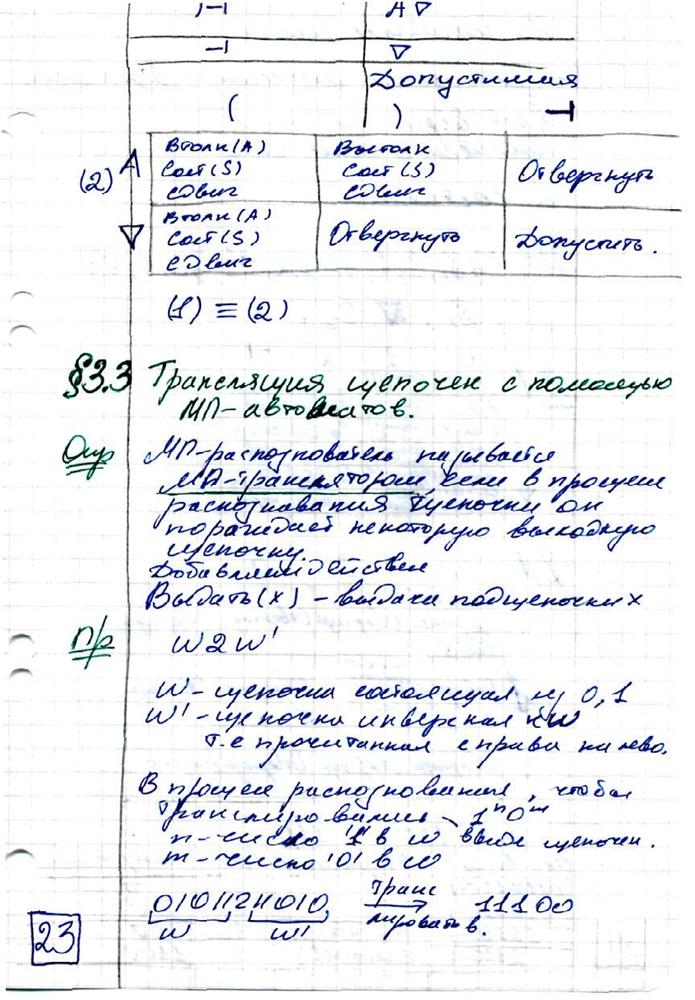 ,⊣ A∇
⊣ ∇
Допустимая
( ) ⊣
(2) A Втолк(A) Вытолк Отвергнуть
Сост(S) Сост(S)
Сдвиг Сдвиг
∇ Втолк(A) Отвергнуть Допустить.
Сост(S)
Сдвиг
(1) ≡ (2)
§3.3 Трансляция цепочек с помощью
МП-автоматов.
Опр МП-распознователь называется
МП-транслятором если в процессе
распознавания цепочки он
порождает некоторую выходную
цепочку.
Добавляем действие
Выдать(x) – выдача подцепочки x
Пр w2w'
w - цепочка состоящая из 0,1
w' - цепочка инверсная к w
т.е прочитанная справа на лево.
В процессе распознования, чтобы
транслировались – 1ⁿ0ᵐ
n-число '1' в w в виде цепочек.
m-число '0' в w
01011211010 транс 11100
w w' лировать в.
23